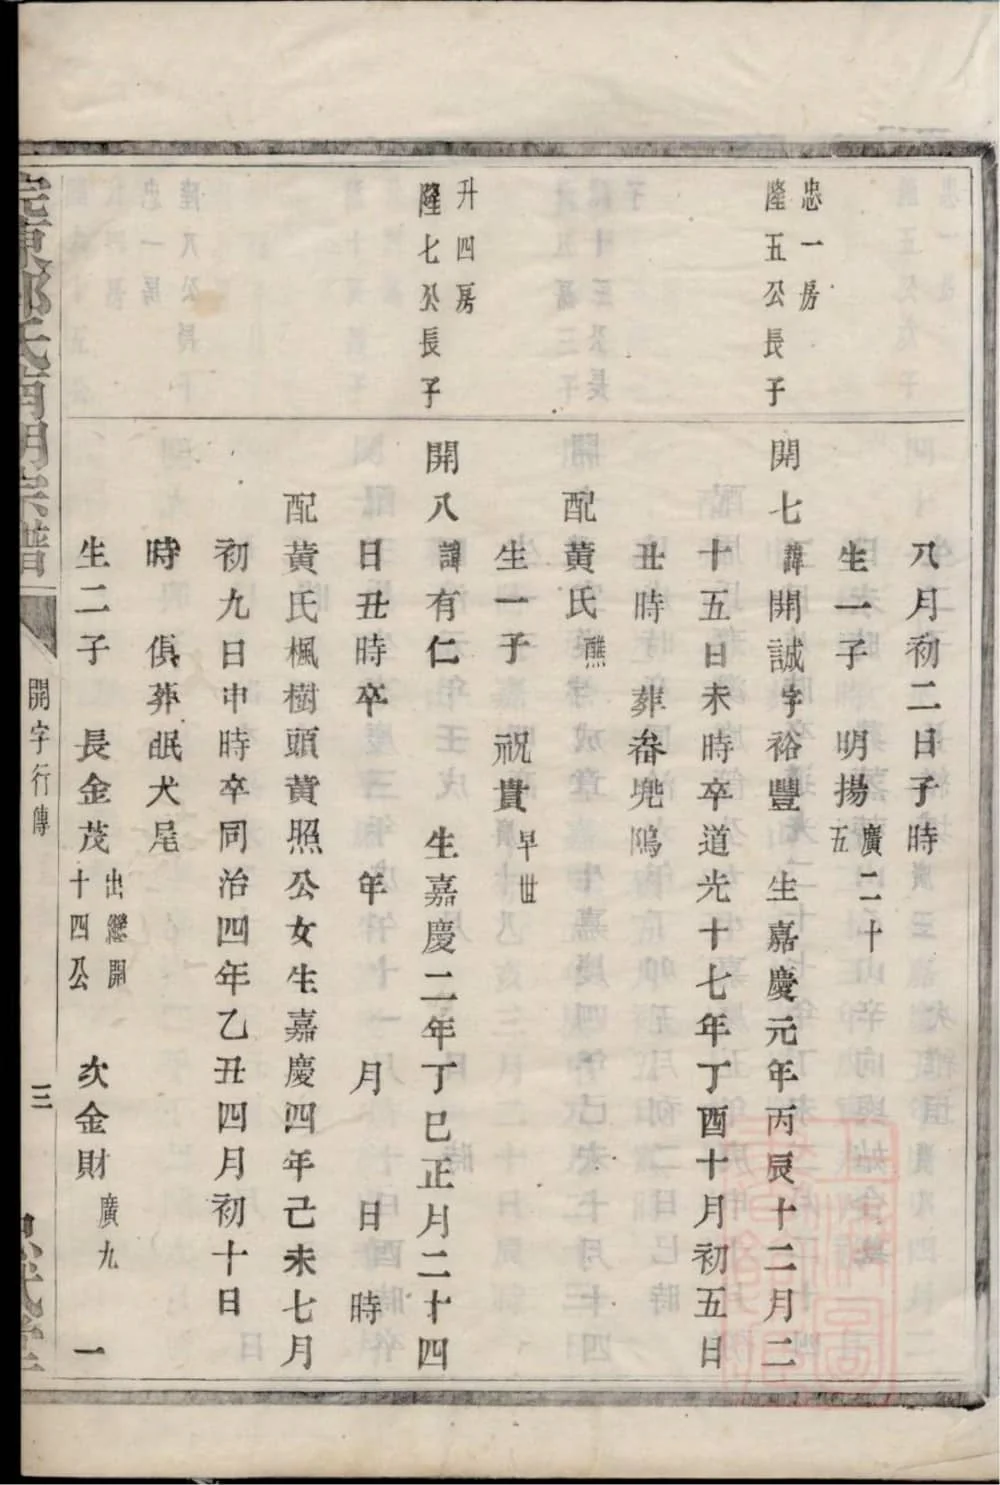 八月初二日子時
生一子 明揚廣二十五
忠一房
隆五公長子
開七諱開誠字裕豐 生嘉慶元年丙辰十二月二
十五日未時卒道光十七年丁酉十月初五日
丑時 葬畨兠隝
配黃氏醮
生一子 祝貴早世
升四房
隆七公長子
開八諱有仁 生嘉慶二年丁巳正月二十四
日丑時卒 年 月 日 時
配黃氏楓樹頭黃照公女生嘉慶四年己未七月
初九日申時卒同治四年乙丑四月初十日
時 俱葬眠犬尾
生二子 長金茂出繼開十四公 次金財廣九 一
氏南明宗譜
開字行傳
三